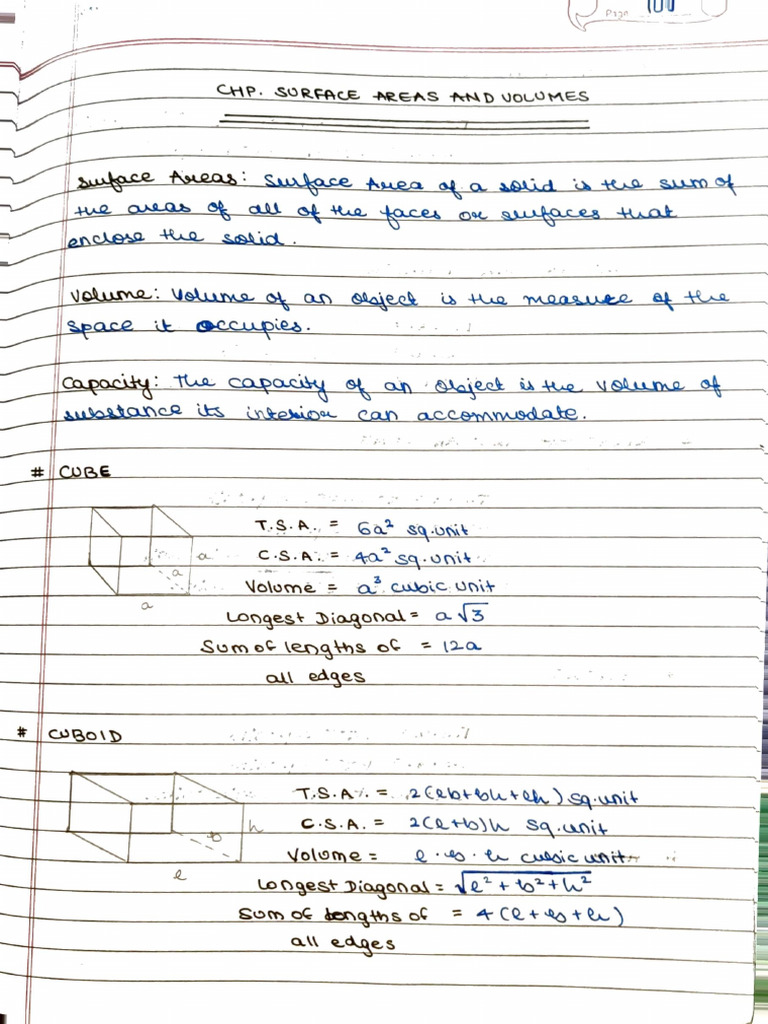 Page 100
CHP. SURFACE AREAS AND VOLUMES
Surface Areas: Surface Area of a solid is the sum of
the areas of all of the faces or surfaces that
enclose the solid.
Volume: Volume of an object is the measure of the
space it occupies.
Capacity: The capacity of an object is the volume of
substance its interior can accommodate.
# CUBE
T.S.A. = 6a² sq.unit
C.S.A. = 4a² sq.unit
a
a
Volume = a³ cubic unit
a
Longest Diagonal = a√3
Sum of lengths of = 12a
all edges
# CUBOID
T.S.A. = 2(lb+bh+lh) sq.unit
C.S.A. = 2(l+b)h sq.unit
h
b
Volume = l.b.h cubic unit
l
Longest Diagonal = √l²+b²+h²
Sum of lengths of = 4(l+b+h)
all edges